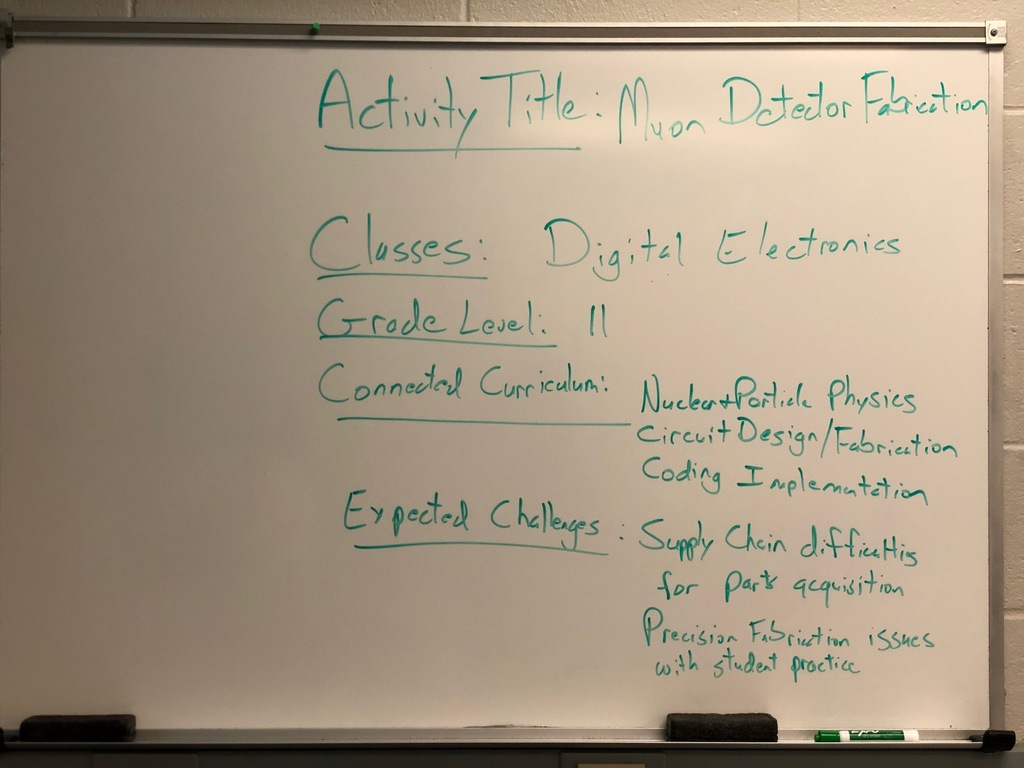 Activity Title: Muon Detector Fabrication
Classes: Digital Electronics
Grade Level: 11
Connected Curriculum: Nuclear+Particle Physics
Circuit Design/Fabrication
Coding Implementation
Expected Challenges: Supply Chain difficulties
for parts acquisition
Precision Fabrication issues
with student practice
EXPO